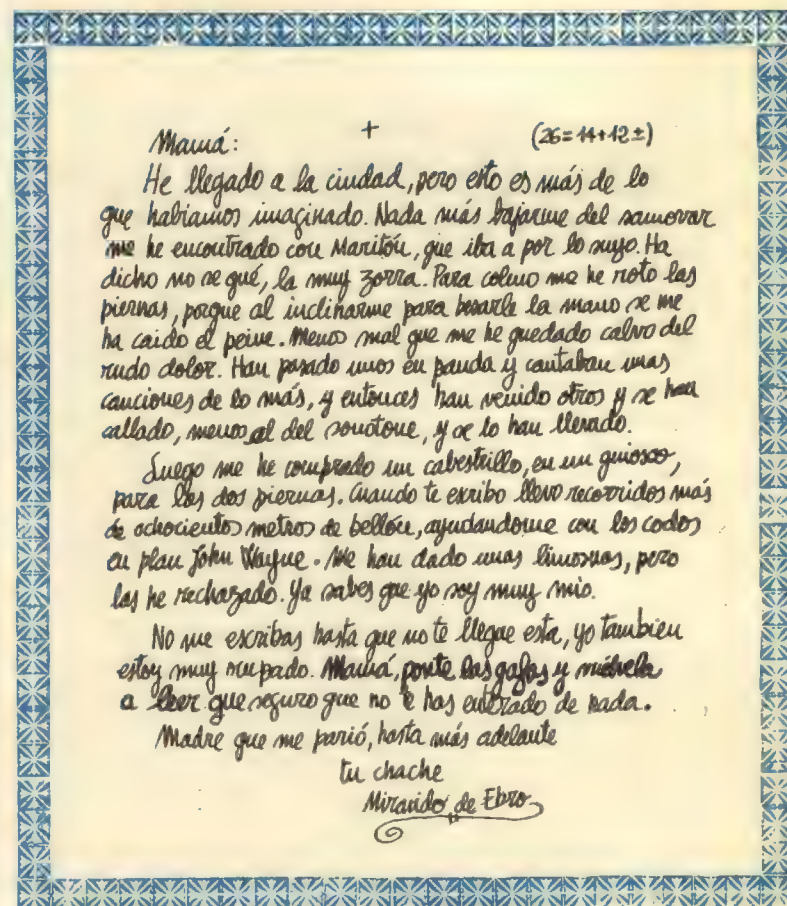 +
Mamá: (26=14+12±)
He llegado a la ciudad, pero esto es más de lo
que habiamos imaginado. Nada más bajarme del samovar
me he encontrado con Maritón, que iba a por lo suyo. Ha
dicho no se qué, la muy zorra. Para colmo me he roto las
piernas, porque al inclinarme para besarle la mano se me
ha caido el peine. Menos mal que me he quedado calvo del
rudo dolor. Han pasado unos en panda y cantaban unas
canciones de lo más, y entonces han venido otros y se han
callado, menos el del sonotone, y se lo han llevado.
Luego me he comprado un cabestrillo, en un quiosco,
para las dos piernas. Cuando te escribo llevo recorridos más
de ochocientos metros de bellón, ayudandome con los codos
en plan John Wayne. Me han dado unas limosnas, pero
las he rechazado. Ya sabes que yo soy muy mio.
No me escribas hasta que no te llegue esta, yo tambien
estoy muy ocupado. Mamá, ponte las gafas y
a leer que seguro que no te has enterado de nada.
Madre que me parió, hasta más adelante
tu chache
Mirando de Ebro